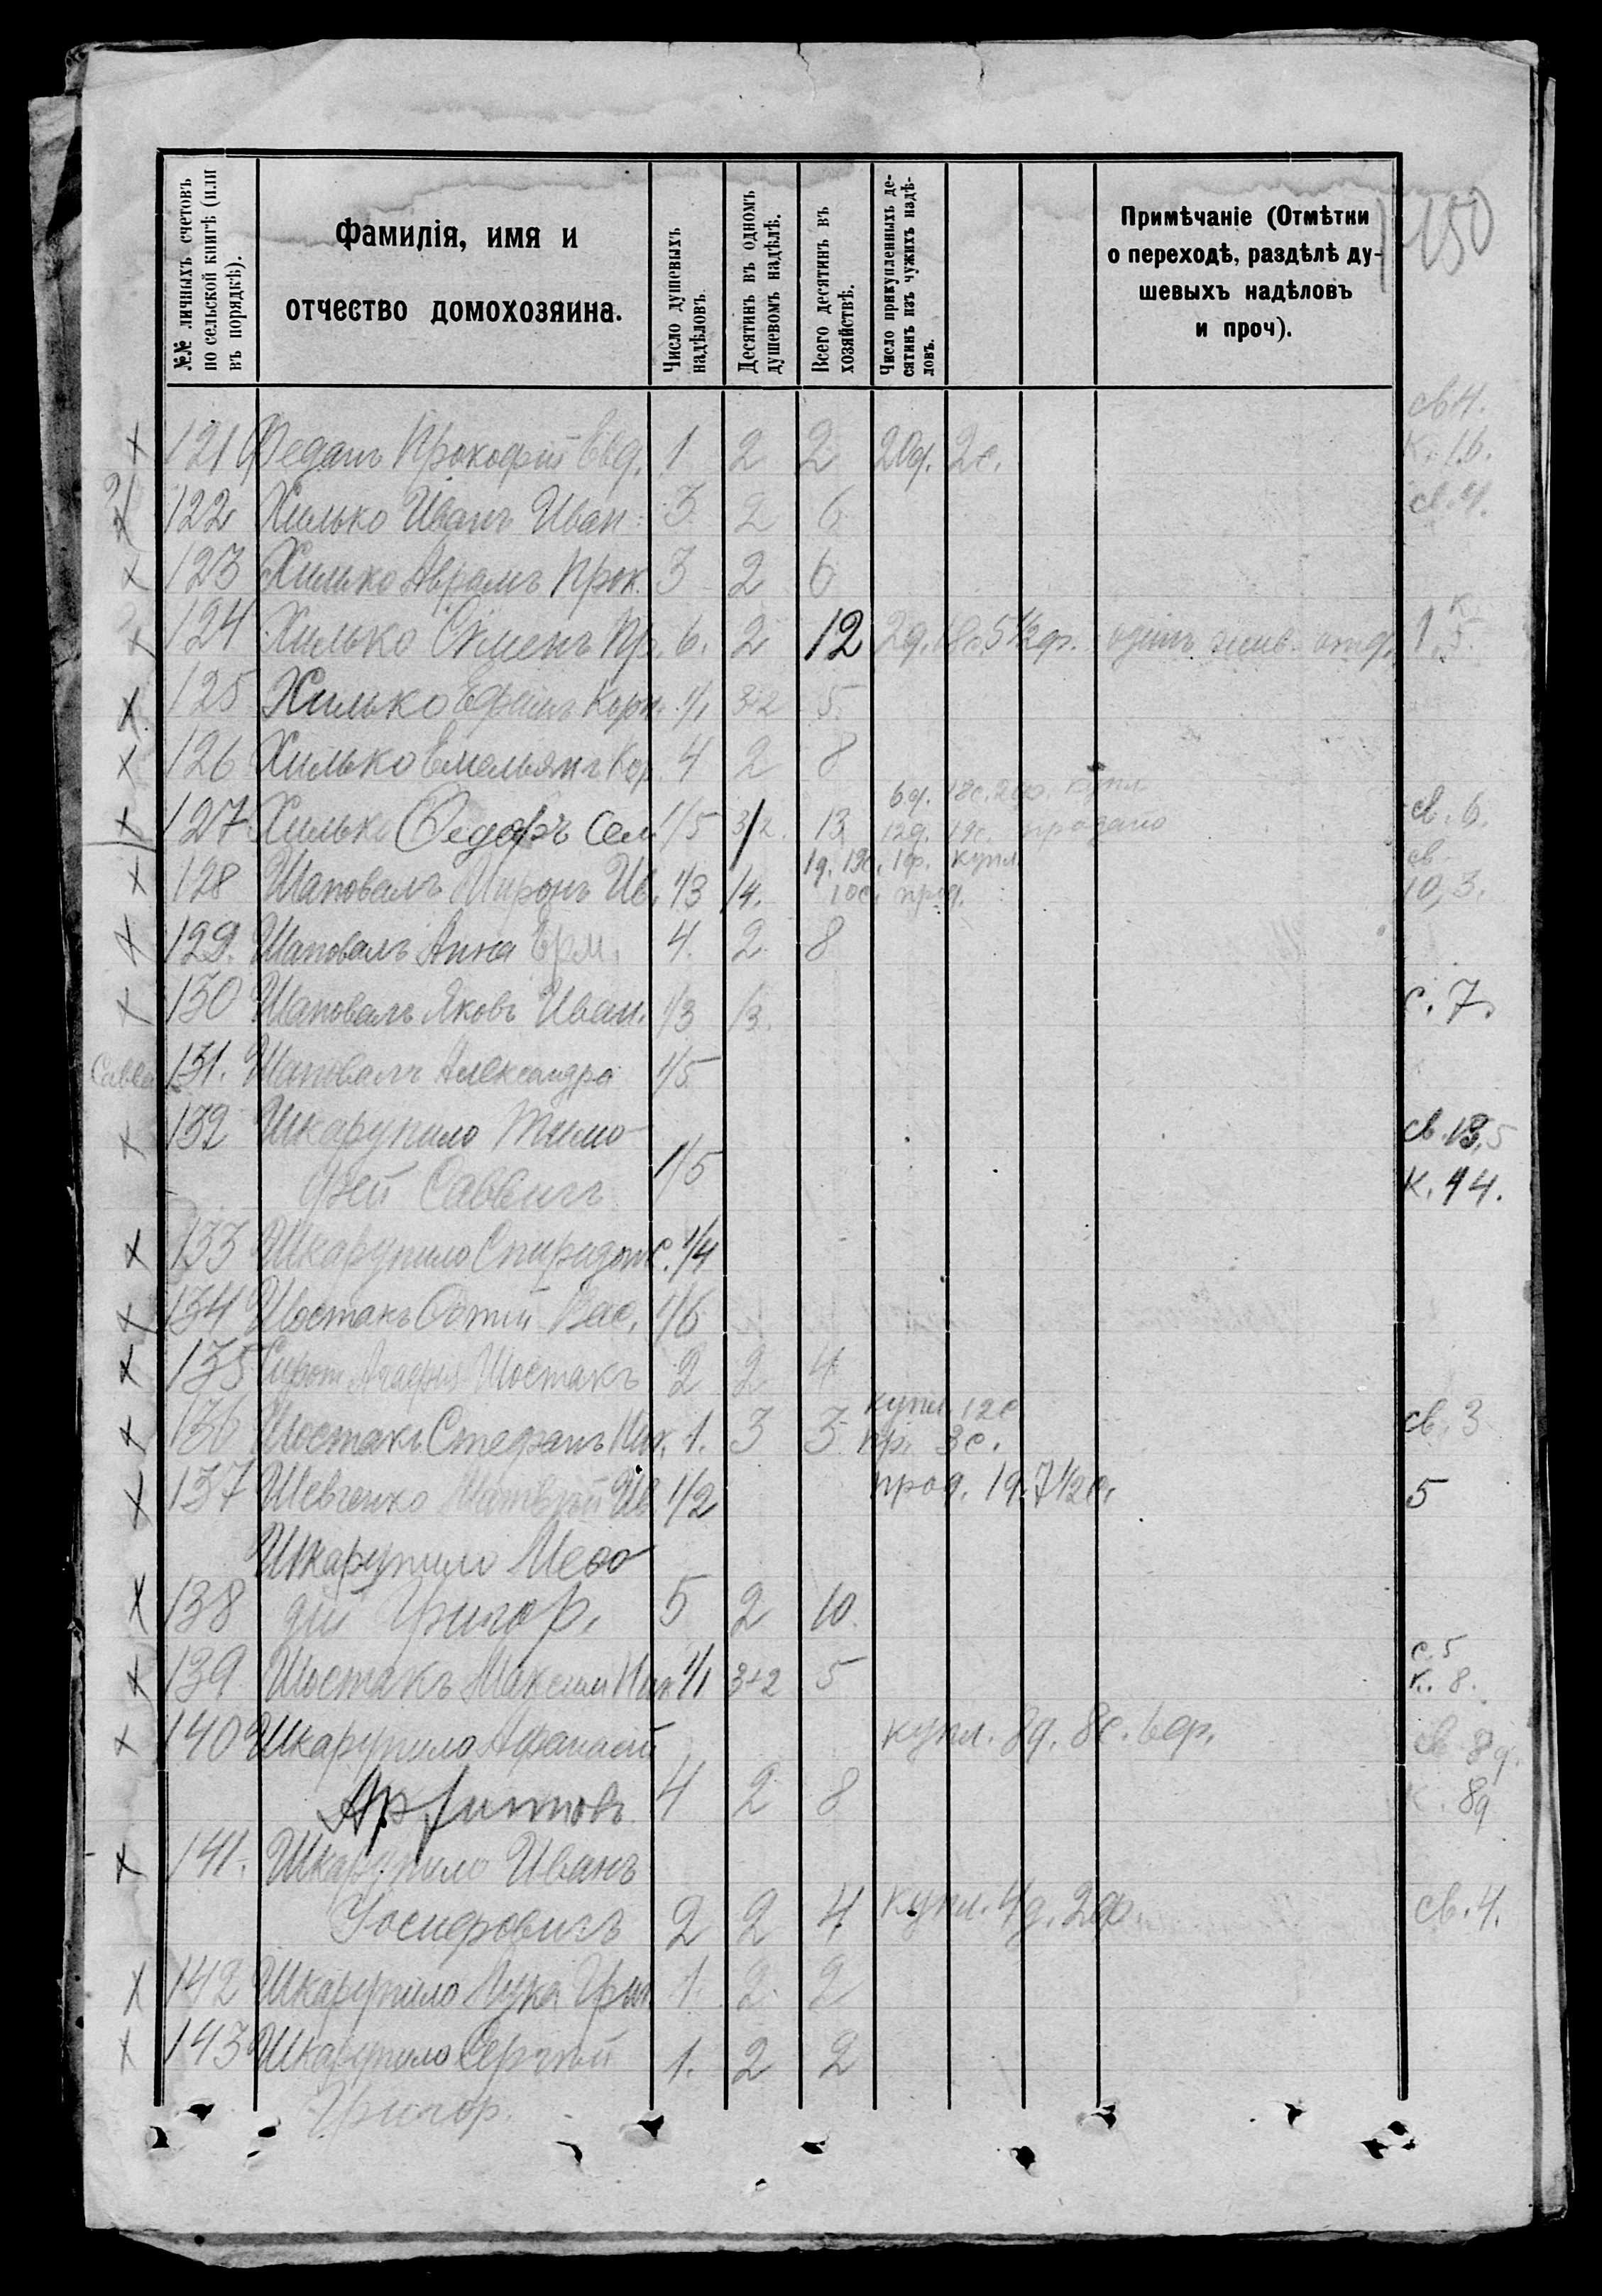 150
№№ личныхъ счетовъ
по сельской книгѣ (или
въ порядкѣ).
Фамилія, имя и
отчество домохозяина.
Число душевыхъ
надѣловъ.
Десятинъ въ одномъ
душевомъ надѣлѣ.
Всего десятинъ въ
хозяйствѣ.
Число прикупленныхъ де-
сятинъ изъ чужихъ надѣ-
ловъ.
Примѣчаніе (Отмѣтки
о переходѣ, раздѣлѣ ду-
шевыхъ надѣловъ
и проч).
св 4.
х 121 Феданъ Прокофій Евд. 1 2 2 20д. 2с. К. 16.
122 Хилько Иванъ Иван. 3 2 6 св. 4.
х 123 Хилько Аврамъ Прок. 3 2 6
х 124 Хилько Семенъ Пр. 6. 2 12 2д. 18с. 5 1/2ф. одинъ отд. 1 к 5.
х 125 Хилько Ефимъ Корн. 1/1 3+2 5.
х 126 Хилько Емельянъ Кор. 4 2 8
6д. 18с. 2ф. купл
х 127 Хилько Федоръ Сем 1/5 3/2. 13 12д. 19с. продано св. 6.
1д. 13с. 1ф. купл св.
х 128 Шаповалъ Миронъ Ив. 1/3 14. 10с. прод. 10,3.
х 129. Шаповалъ Анна Ерм. 4. 2. 8
х 130 Шаповалъ Яковъ Иван. 1/3 13. с. 7.
Савва 131. Шаповалъ Александра 1/5
х 132 Шкарупило Тимо- св. 13,5
фей Саввичъ 1/5 К. 14.
х 133 Шкарупило Спиридонъ С. 1/4
х 134 Шостакъ Фотій Вас. 1/6
х 135 Сирот. Агафія Шостакъ 2 2 4
купл. 12с
х 136 Шостакъ Стефанъ Ник. 1. 3 3 пр. 3с. св. 3
х 137 Шевченко Матвѣй Ив 1/2 прод. 1д. 7 1/2с. 5
Шкарупило Мефо
х 138 дій Григор. 5 2 10.
с. 5
х 139 Шостакъ Максим Ник 1/1 3+2 5 К. 8.
х 140 Шкарупило Афанасій купл. 8д. 8с. 6ф. св 8д.
Арх. 4 2 8 К. 8д
х 141. Шкарупило Иванъ
Іосифовичъ 2 2 4 купл. 4д. 2ф. св. 4.
х 142 Шкарупило Лука Григ. 1. 2. 2
х 143 Шкарупило Сергѣй 1. 2 2
Григор.